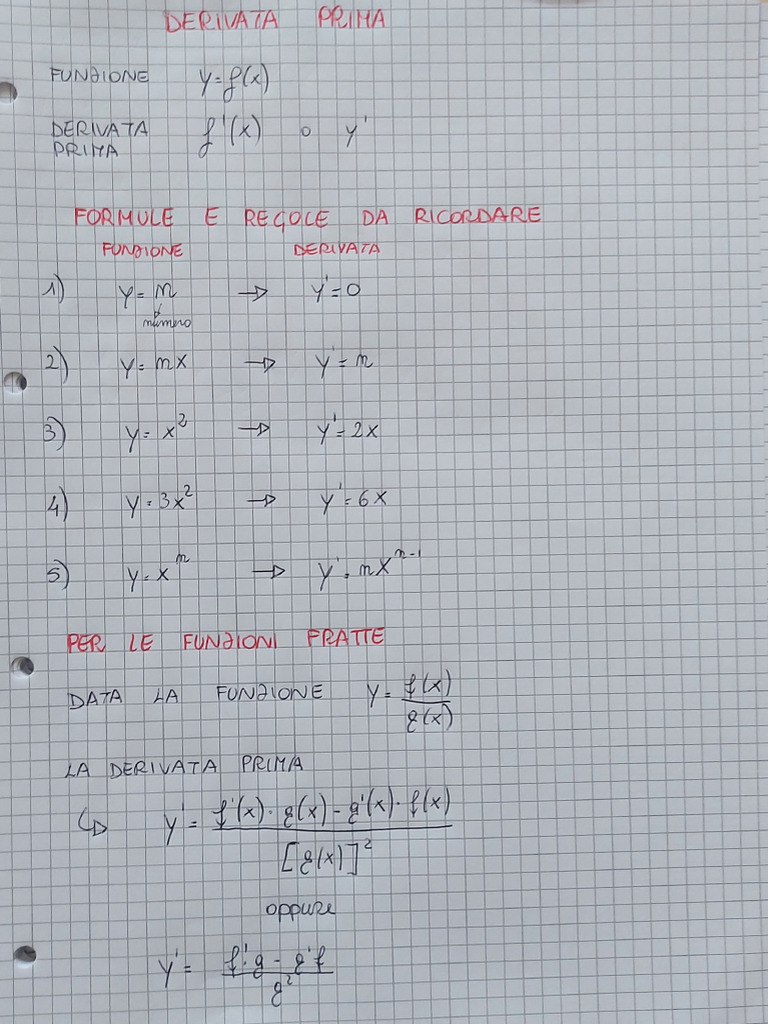 DERIVATA PRIMA
FUNZIONE y=f(x)
DERIVATA PRIMA f'(x) o y'
FORMULE E REGOLE DA RICORDARE
FUNZIONE DERIVATA
1) y=n → y'=0
numero
2) y=nx → y'=n
3) y=x² → y'=2x
4) y=3x² → y'=6x
5) y=xⁿ → y'=nxⁿ⁻¹
PER LE FUNZIONI FRATTE
DATA LA FUNZIONE y=f(x)/g(x)
LA DERIVATA PRIMA
↳ y'=f'(x)·g(x)-g'(x)·f(x)/[g(x)]²
oppure
y'=f'·g-g'f/g²